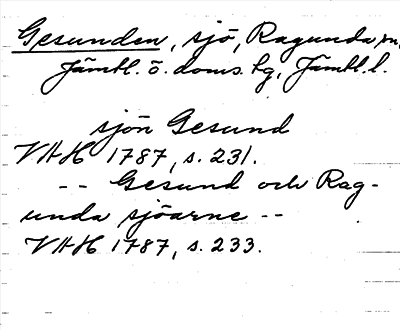 Gesunden, sjö, Ragunda sn,
Jämtl. ö. doms. hg, Jämtl. l.
sjön Gesund
VAH 1787, s. 231.
-- Gesund och Rag-
unda sjöarne --
VAH 1787, s. 233.